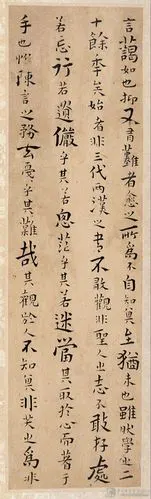 言藹如也抑又有難者愈之所為不自知其至猶未也雖然學之二
十餘年矣始者非三代兩漢之書不敢觀非聖人之志不敢存處
若忘行若遺儼乎其若思茫乎其若迷當其取於心而著于
手也惟陳言之務去戛戛乎其難哉其觀於人不知其非笑之為非